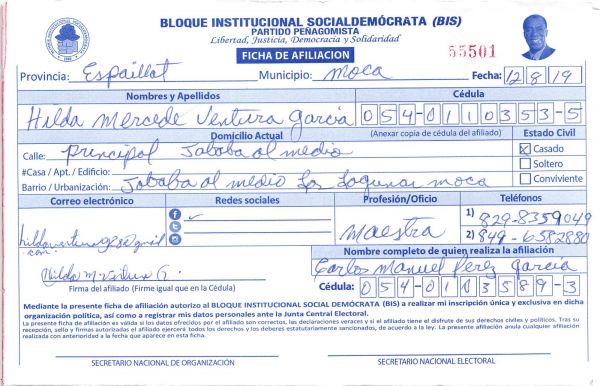 BLOQUE INSTITUCIONAL SOCIALDEMÓCRATA (BIS)
PARTIDO PEÑAGOMISTA
Libertad, Justicia, Democracia y Solidaridad
FICHA DE AFILIACION
55501
Provincia: Espaillat Municipio: Moca Fecha: 12/8/19
Nombres y Apellidos Cédula
Hilda Mercede Ventura Garcia 054-0110353-5
Domicilio Actual (Anexar copia de cédula del afiliado) Estado Civil
Calle: Principal Jababa al medio
Casado
#Casa / Apt. / Edificio:
Soltero
Barrio / Urbanización: Jababa al medio Las Lagunas moca
Conviviente
Correo electrónico Redes sociales Profesión/Oficio Teléfonos
1) 829-8359049
Maestra
2) 849-6582880
.com.
Nombre completo de quien realiza la afiliación
Carlos Manuel Perez Garcia
Hilda M Ventura G.
Firma del afiliado (Firme igual que en la Cédula)
Cédula: 054-0103589-3
Mediante la presente ficha de afiliación autorizo al BLOQUE INSTITUCIONAL SOCIAL DEMÓCRATA (BIS) a realizar mi inscripción única y exclusiva en dicha
organización política, así como a registrar mis datos personales ante la Junta Central Electoral.
La presente ficha de afiliación es válida si los datos ofrecidos por el afiliado son correctos, las declaraciones veraces y si el afiliado tiene el disfrute de sus derechos civiles y políticos. Tras su
recepción, sello y firmas autorizados el afiliado ejercerá todos los derechos y los deberes estatutariamente sancionados, de acuerdo a la ley. La presente afiliación anula cualquier afiliación
realizada con anterioridad a la fecha que aparece en esta ficha.
SECRETARIO NACIONAL DE ORGANIZACIÓN SECRETARIO NACIONAL ELECTORAL